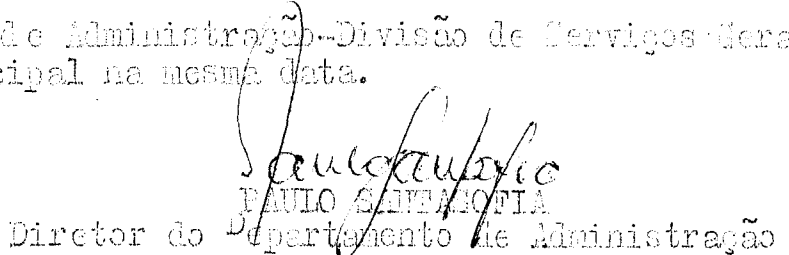 de Administração-Divisão de Serviços Gera
cipal na mesma data.
PAULO SANTALOFIA
Diretor do Departamento de Administração